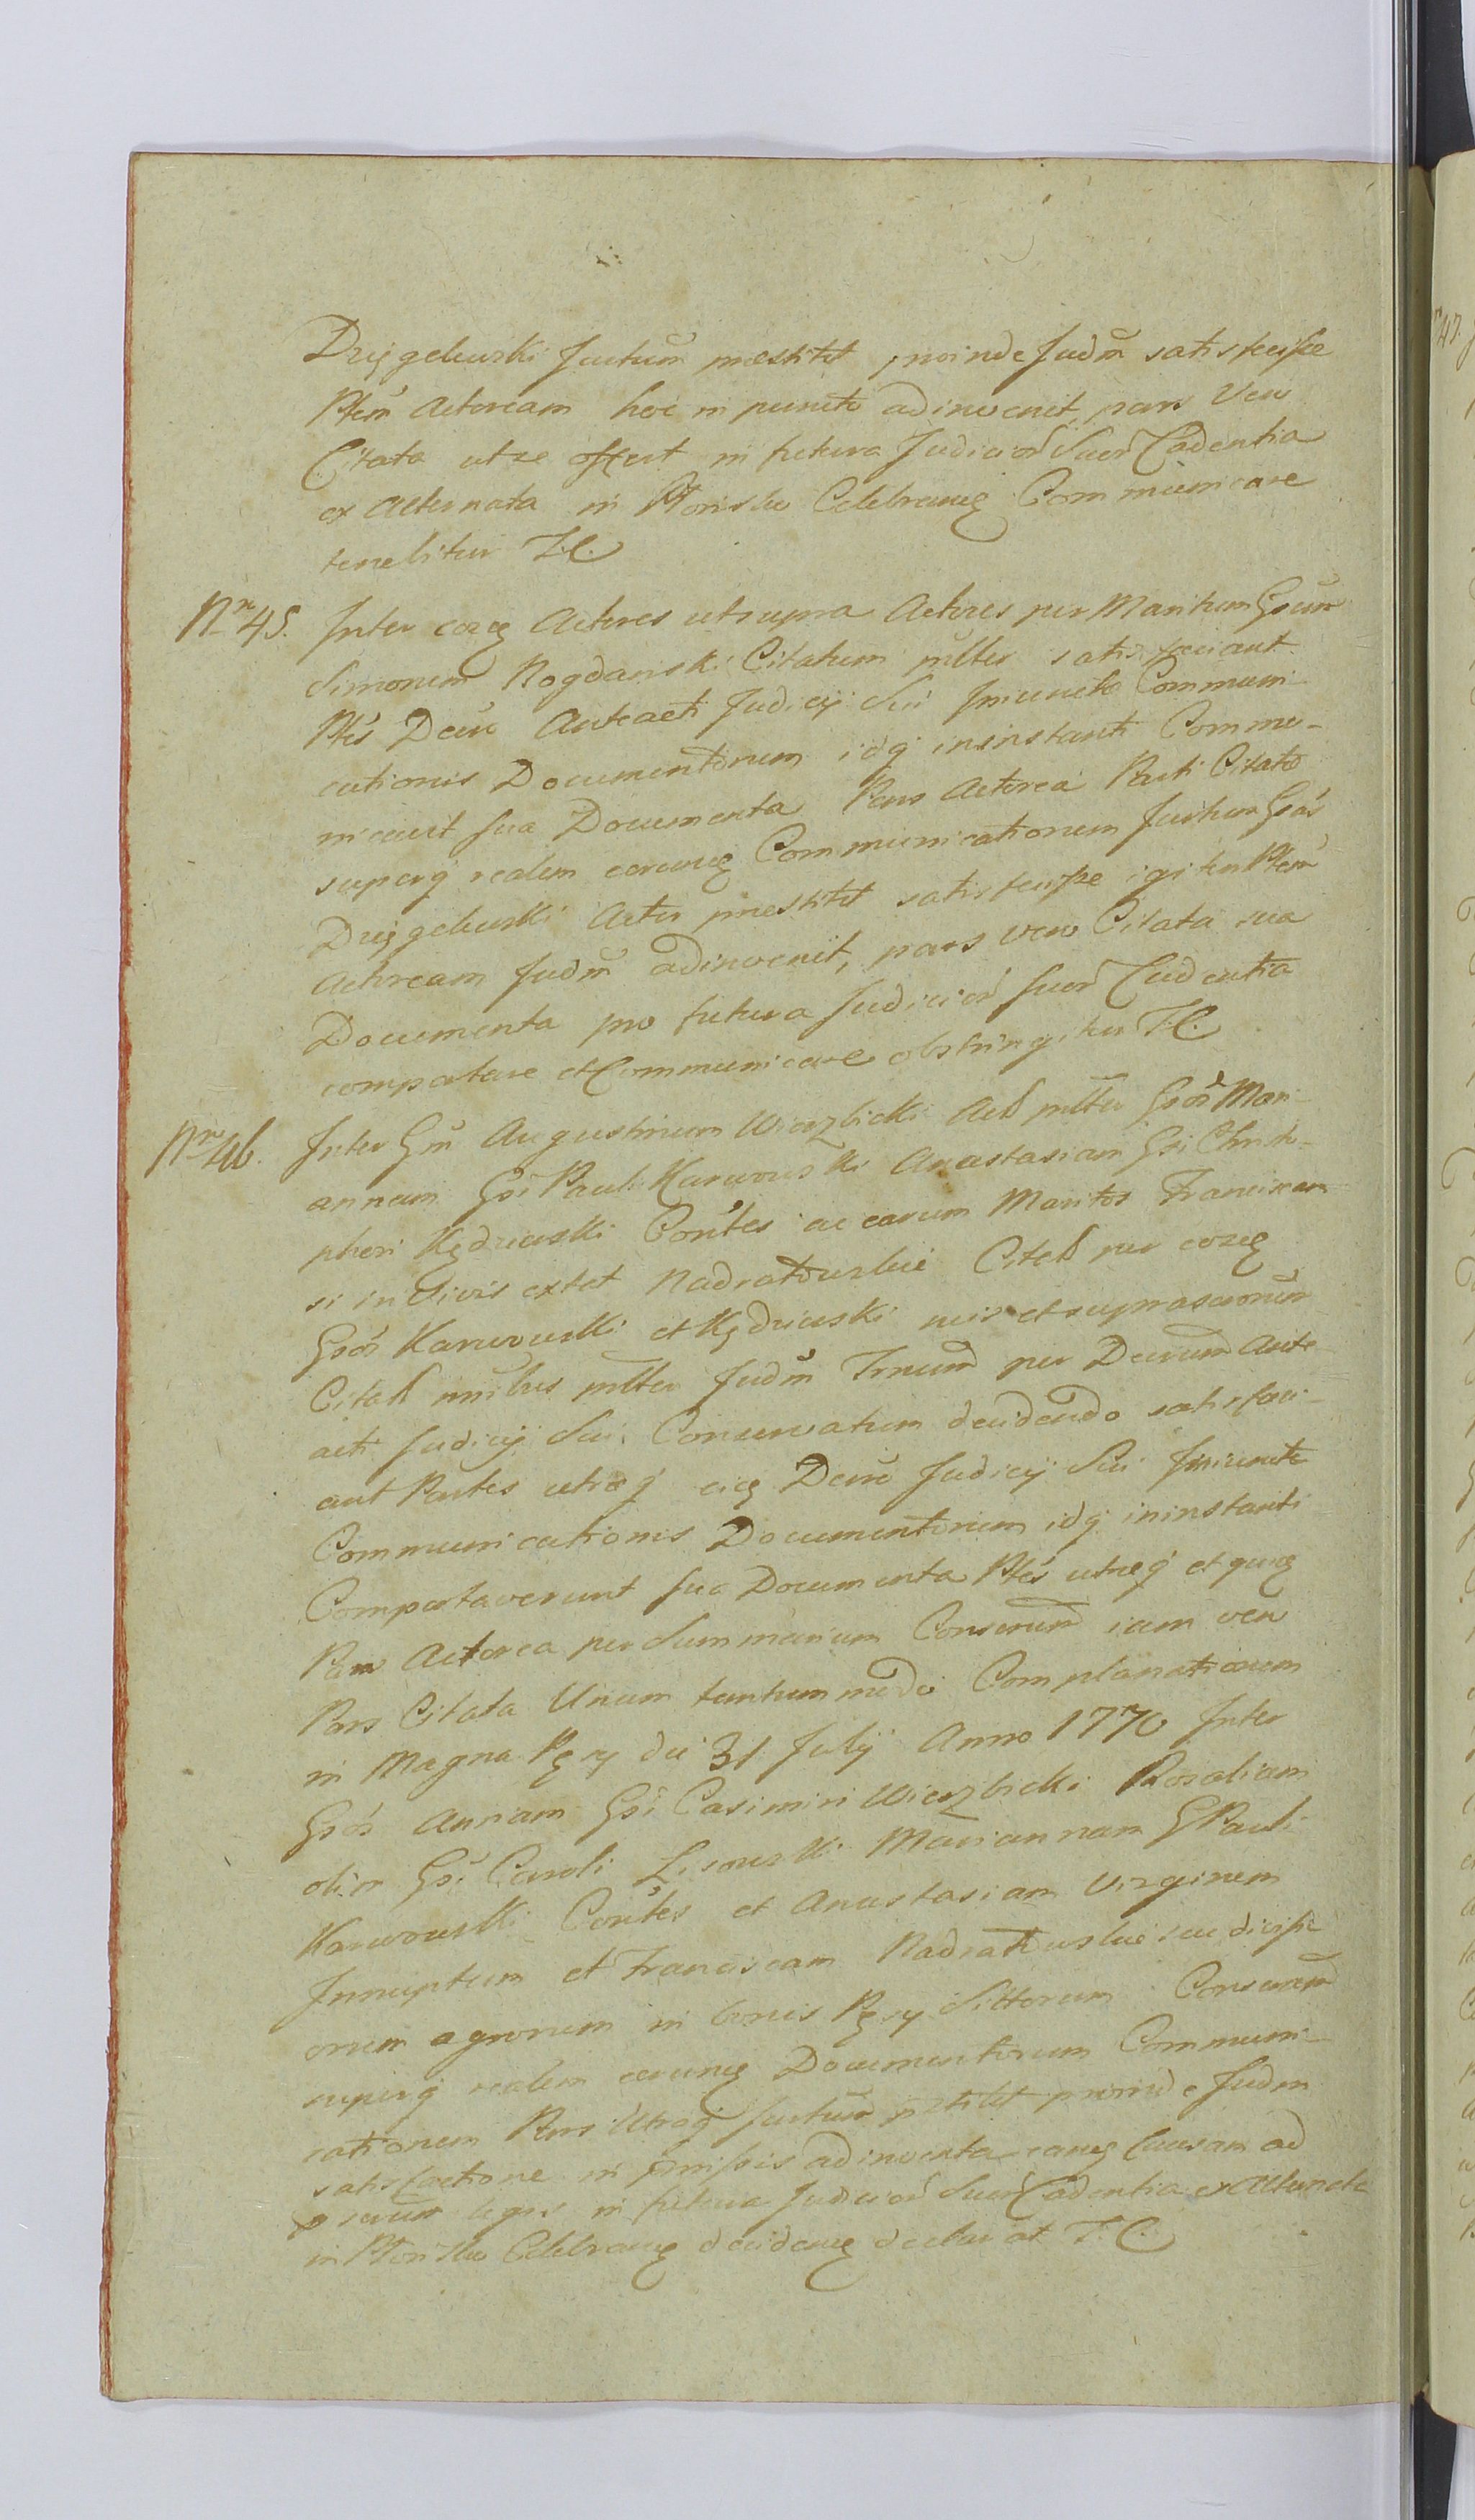 Drięgelewski Juctum̃ præstitit, proinde Judm̃ satisfecisse
Ptem̃ Actoream hoc in puncto adinvenit, pars Vero
Citata utse offert in futura Judicior̃ Suor̃ Cadentia
ex alternata in celebranq Communicare
tenebitur T.C.
Nr̃o 45. Inter eosq Actores utsupra Actores per Maritum Gsum
Simonem Rogdanski Citatum mllter satisfaciant
Ptes Decr̃o Anteacti Judicij Sui Iniuncto Communi-
cationis Documentorum idq in instanti Commu-
nicavit sua Documenta Pars Actorea Parti Citatæ
superq realem earunq Communicationem Juctum Gsos
Drięgelewski Actor præstitit satisfecisse igitur Ptem̃
Actoream Judm̃ adinvenit, pars vero Citata sua
Documenta pro futura Judicior̃ Suor̃ Cadentia
comportare et Communicare obstringitur T.C.
Nr̃o 46. Inter Gm̃ Augustinum Wierzbicki Act̃ mllter Gsos Mari-
annam Gsi Pauli Karwowski Anastasiam Gsi Christo-
phori Kędzierski Con̑tes ac earum Maritos Franciscam
si indivis extat Nadratowskie Citat̃ per eosq
Gsos Karwowski et Kędzierski suis et suprascriorum̃
Citat̃ nnibus mllter Judm̃ Trnum̃ per Decrum̃ Ante
acti Judicij Sui Conservatum decidendo satisfaci-
ant Partes utræq eiq Decr̃o Judicij Sui Iniuncto
Communicationis Documentorum idq in instanti
Comportaverunt sua Documenta Ptes utræq et quiq
Pars Actorea per Summarium Conserum̃ iam vero
Pars Citata Unum tantummodo Complanationem
in Magna Pęsy die 31 Julij Anno 1770 Inter
Gsos Annam Gsi Casimiri Wierzbicki Rosaliam
olim Gsi Caroli Lisowski Mariannam G Pauli
Karwowski Con̑tes et Anastasiam Virginem
Innuptam et Franciscam Nadratowskie seu divisi-
onem agrorum in bonis Pęsy Sittorum Conseram̃
superq realem earunq Documentorum Communi-
cationem Pars Utraq Juctum̃ pstitit proinde Judm
satisfactione in præmissis adinventa eanq causam ad
legis in futura Judicior̃ Suor̃ Cadentia ex alternata
in celebranq decidenq declarat T.C.